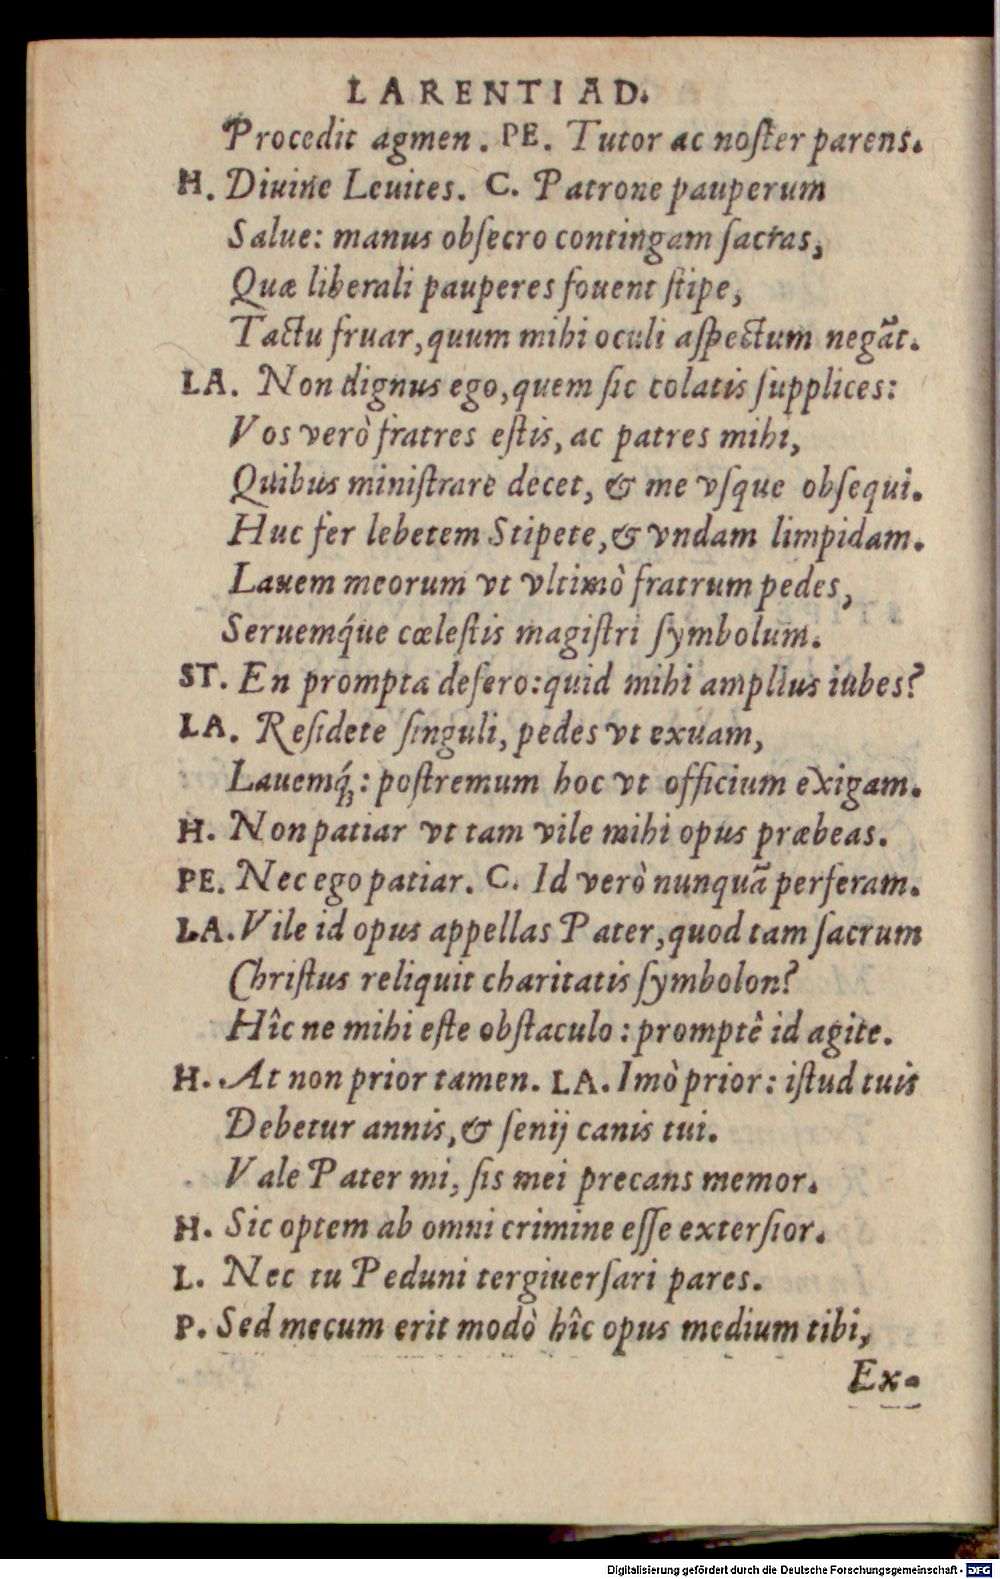 LARENTIAD.
Procedit agmen. PE. Tutor ac noſter parens.
H. Diuine Leuites. C. Patrone pauperum
Salue: manus obſecro contingam ſacras,
Quæ liberali pauperes fouent ſtipe,
Tactu fruar, quum mihi oculi aſpectum negãt.
LA. Non dignus ego, quem ſic colatis ſupplices:
Vos verò fratres eſtis, ac patres mihi,
Quibus miniſtrare decet, & me vſque obſequi.
Huc fer lebetem Stipete, & vndam limpidam.
Lauem meorum vt vltimò fratrum pedes,
Seruemq́ue cœleſtis magiſtri ſymbolum.
ST. En prompta defero: quid mihi amplius iubes?
LA. Reſidete ſinguli, pedes vt exuam,
Lauemq́;: poſtremum hoc vt officium exigam.
H. Non patiar vt tam vile mihi opus præbeas.
PE. Nec ego patiar. C. Id verò nunquã perferam.
LA. Vile id opus appellas Pater, quod tam ſacrum
Chriſtus reliquit charitatis ſymbolon?
Hîc ne mihi eſte obſtaculo: promptê id agite.
H. At non prior tamen. LA. Imò prior: iſtud tuis
Debetur annis, & ſenij canis tui.
Vale Pater mi, ſis mei precans memor.
H. Sic optem ab omni crimine eſſe exterſior.
L. Nec tu Peduni tergiuerſari pares.
P. Sed mecum erit modò hîc opus medium tibi,
Ex-
Digitalisierung gefördert durch die Deutsche Forschungsgemeinschaft - DFG